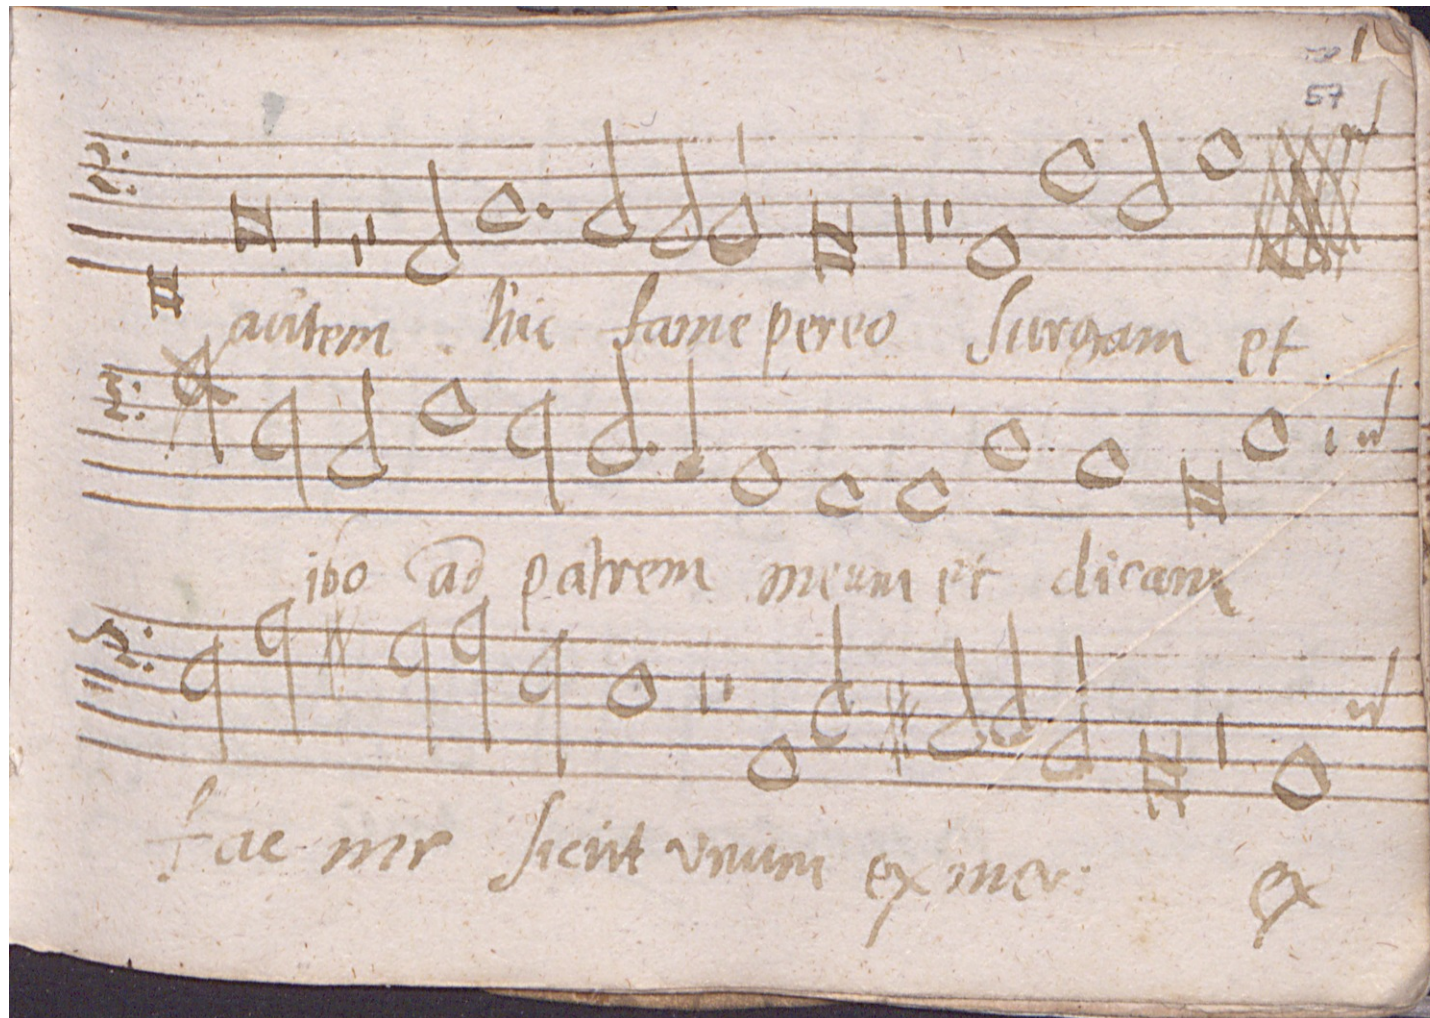 57
autem hic fame pereo surgam et
ibo ad patrem meum et dicam
fac me sicut vnum ex mer: ex